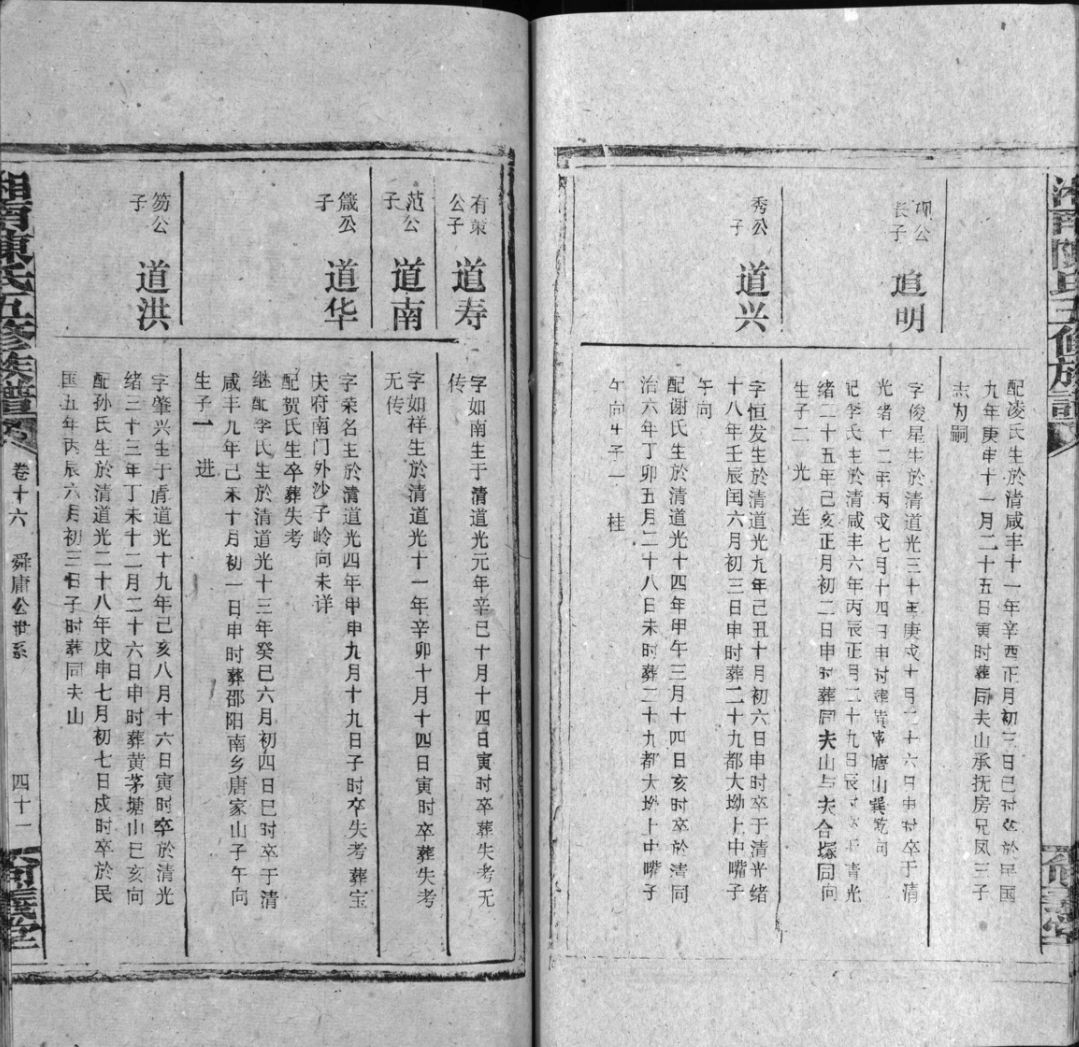 配凌氏生於清咸丰十一年辛酉正月初三日巳时卒於民国
九年庚申十一月二十五日寅时葬同夫山承抚房兄凤三子
杰为嗣
砚公
长子
道明
字俊星生於清道光三十年庚戌十月二十六日申时卒于清
光绪十二年丙戌七月十四日申时葬黄茅塘山巽乾向
配李氏生於清咸丰六年丙辰正月二十九日辰时卒于清光
绪二十五年己亥正月初二日申时葬同夫山与夫合塚同向
生子二 光 连
秀公
子
道兴
字恒发生於清道光九年己丑十月初六日申时卒于清光绪
十八年壬辰闰六月初三日申时葬二十九都大坳上中嘴子
午向
配谢氏生於清道光十四年甲午三月十四日亥时卒於清同
治六年丁卯五月二十八日未时葬二十九都大坳上中嘴子
午向生子一 桂
湘南陈氏五修族谱
有策
公子
道寿
字如南生于清道光元年辛巳十月十四日寅时卒葬失考无
传
范公
子
道南
字如祥生於清道光十一年辛卯十月十四日寅时卒葬失考
无传
箴公
子
道华
字荣名生於清道光四年甲申九月十九日子时卒失考葬宝
庆府南门外沙子岭向未详
配贺氏生卒葬失考
继配李氏生於清道光十三年癸巳六月初四日巳时卒于清
咸丰九年己未十月初一日申时葬邵阳南乡唐家山子午向
生子一 进
笏公
子
道洪
字肇兴生于清道光十九年己亥八月十六日寅时卒於清光
绪三十三年丁未十二月二十六日申时葬黄茅塘山巳亥向
配孙氏生於清道光二十八年戊申七月初七日戌时卒於民
国五年丙辰六月初三日子时葬同夫山
湘南陳氏五修族譜
卷十六 舜庸公世系
四十一